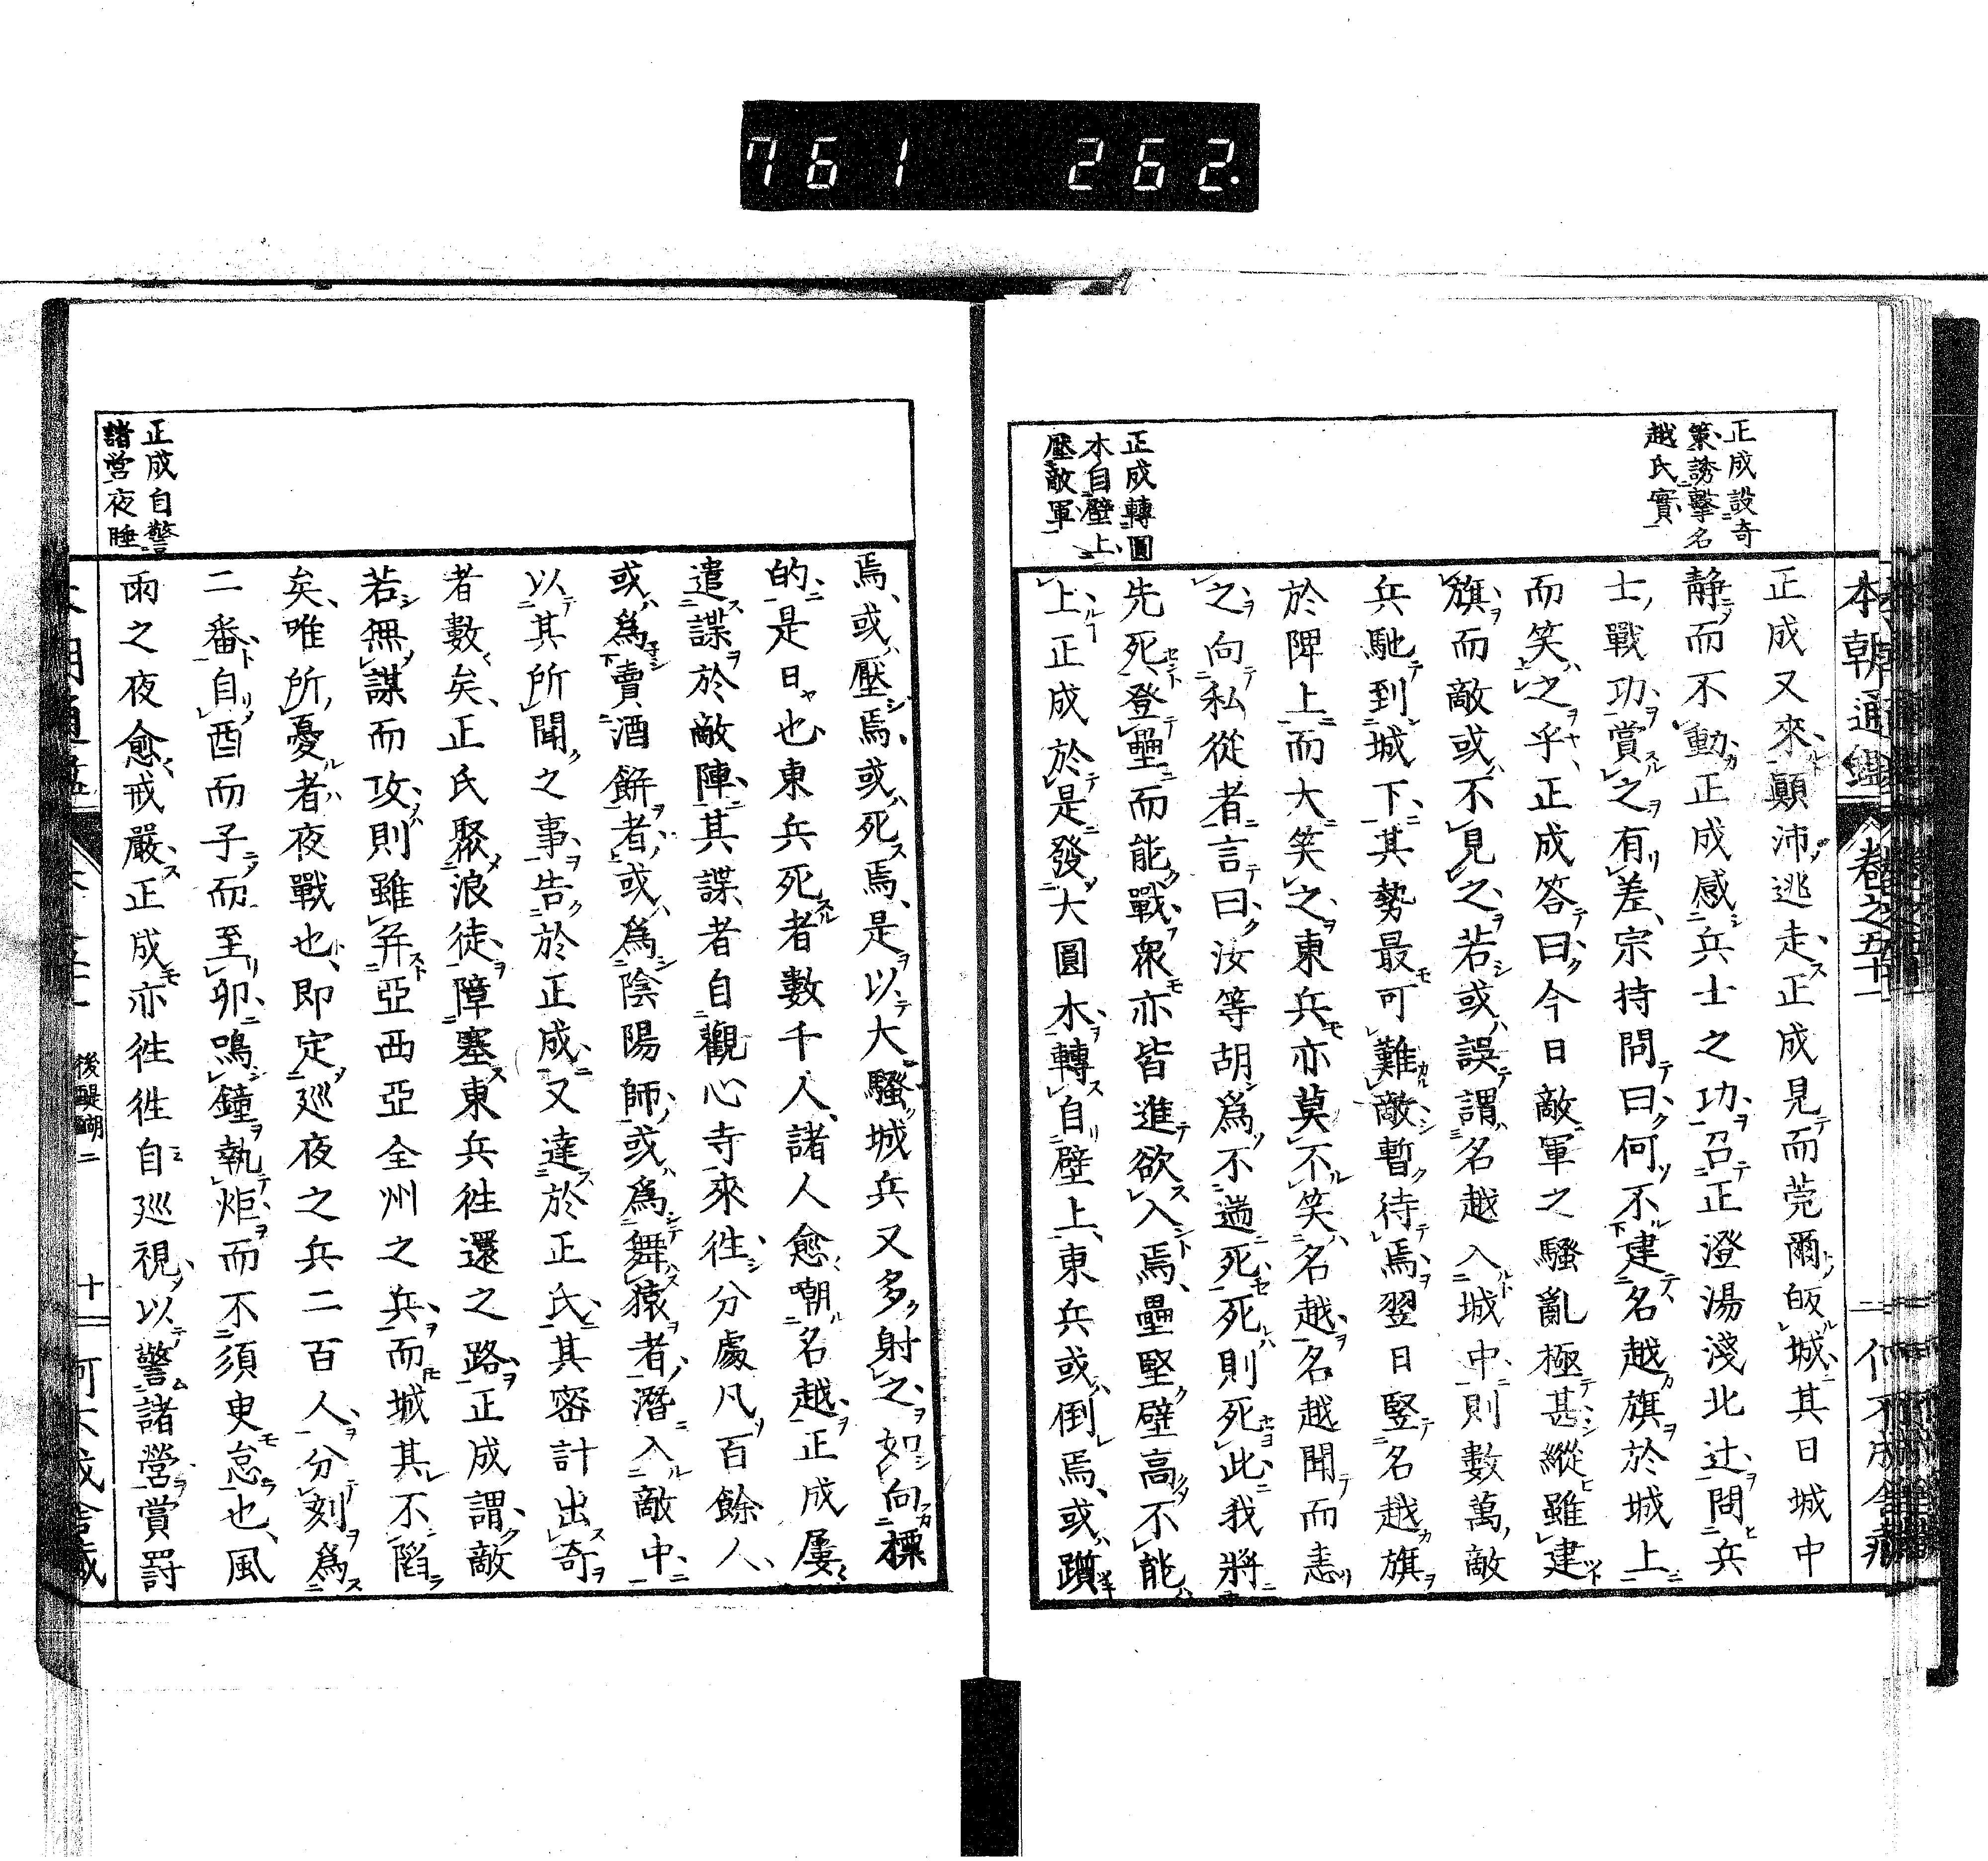 761 262.
本朝通鑑 卷之五十一
正成設奇
策誘擊名
越氏實
正成轉圓
木自壁上
壓敵軍
正成又來顛沛逃走正成見而莞爾皈城其日城中
静而不動正成感兵士之功召正澄湯淺北辻問兵
士戰功賞之有差宗持問曰何不建名越旗於城上
而笑之乎正成答曰今日敵軍之騷亂極甚縱雖建
旗而敵或不見之若或誤謂名越入城中則數萬敵
兵馳到城下其勢最可難敵暫待焉翌日竪名越旗
於陴上而大笑之東兵亦莫不笑名越名越聞而恚
之向私從者言曰汝等胡爲不遄死死則死此我將
先死登壘而能戰衆亦皆進欲入焉壘堅壁高不能
上正成於是發大圓木轉自壁上東兵或倒焉或躓
正成自警
諸営夜睡
焉或壓焉或死焉是以大騷城兵又多射之如向標
的是日也東兵死者數千人諸人愈嘲名越正成屢
遣諜於敵陣其諜者自觀心寺來徃分處凡百餘人
或爲賣酒餅者或爲陰陽師或爲舞猿者潛入敵中
以其所聞之事告於正成又達於正氏其密計出奇
者數矣正氏聚浪徒障塞東兵徃還之路正成謂敵
若無謀而攻則雖并亞西亞全州之兵而城其不陷
矣唯所憂者夜戰也即定巡夜之兵二百人分刻爲
二番自酉而子而至卯鳴鐘執炬而不須臾怠也風
雨之夜愈戒嚴正成亦徃徃自巡視以警諸營賞罰
後醍醐二 十二